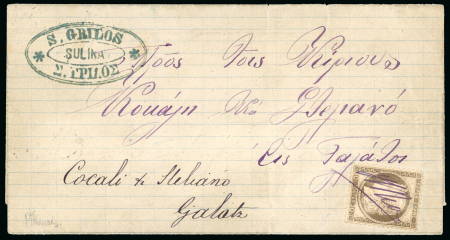 S. GRILOS
SULINA
Σ. ΓΡΙΛΟΣ
Πρὸς Τοις Κυρίους
Κοκάλη και Στεριανό
εις Γαλάτσι
Cocali & Steliano
Galatz